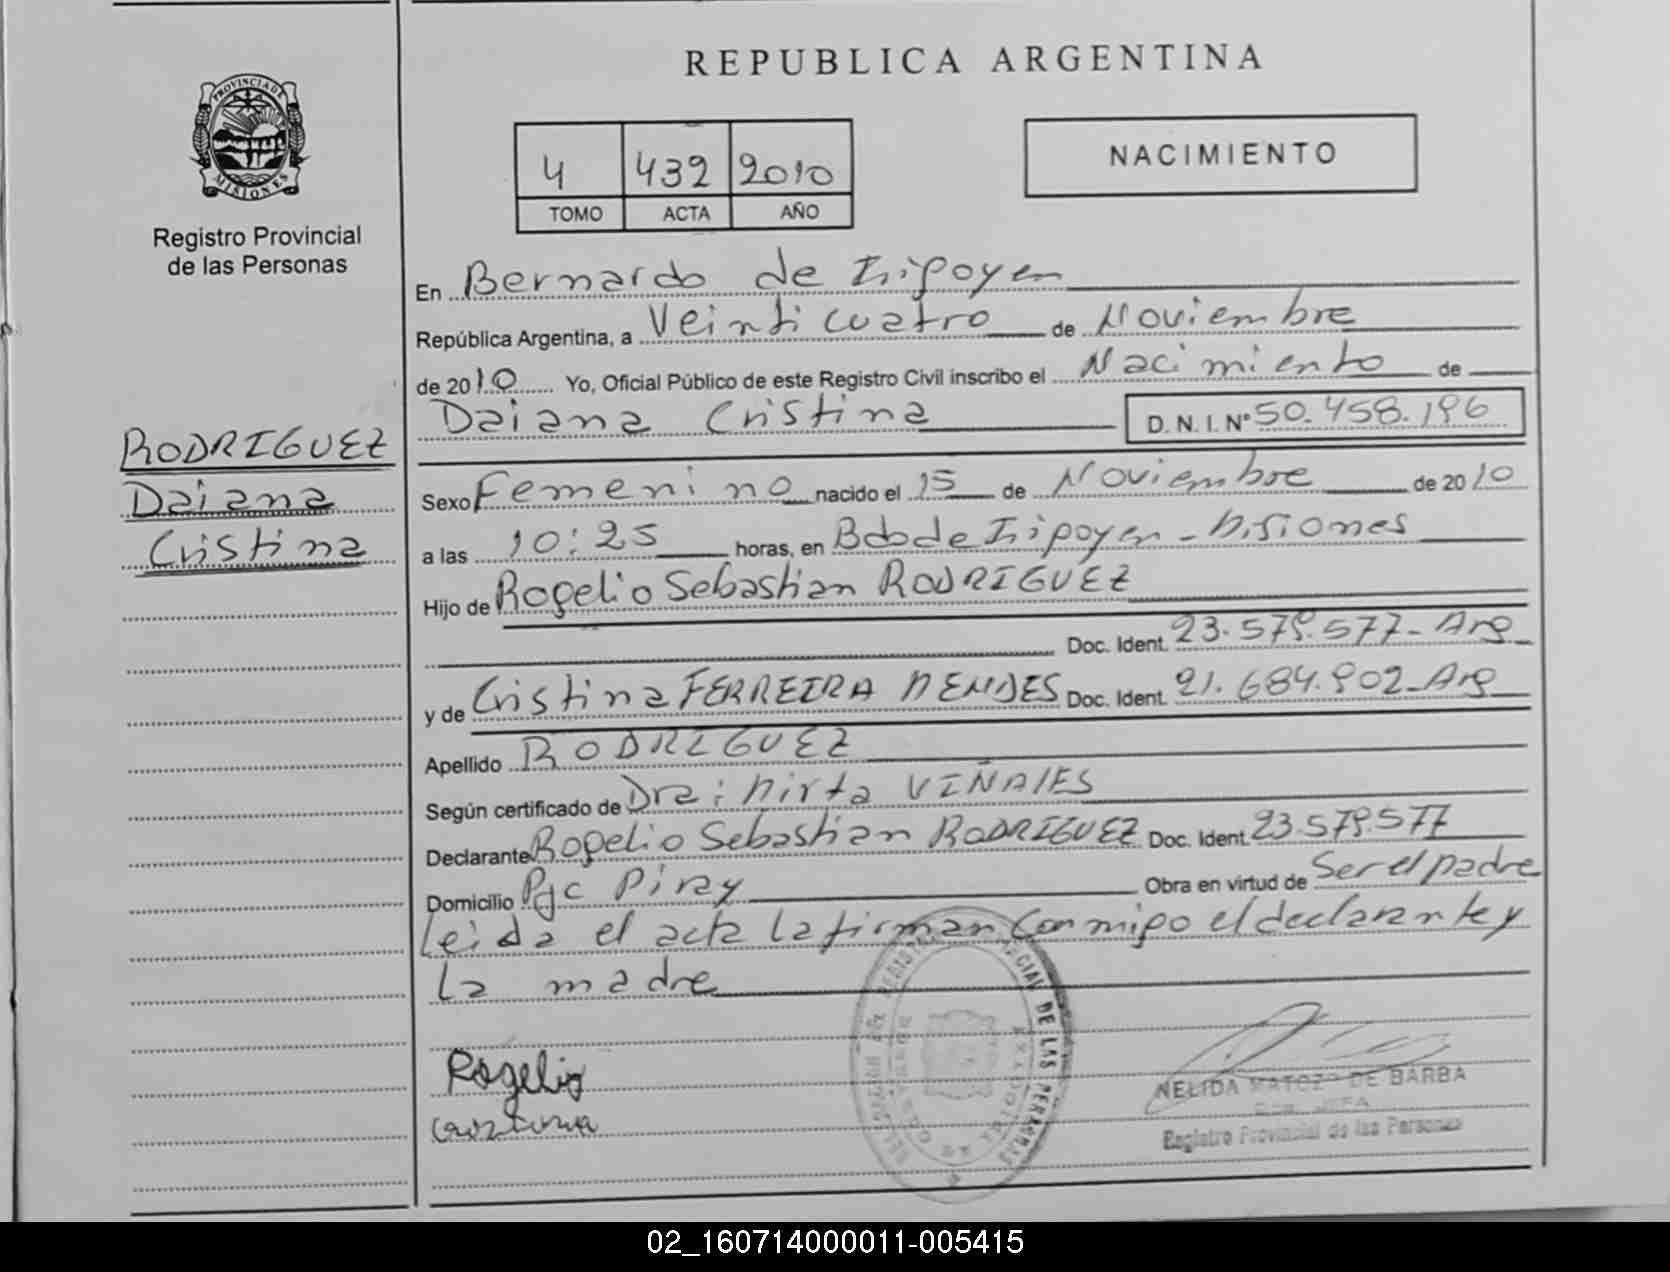 REPUBLICA ARGENTINA
PROVINCIA DE
MISIONES
Registro Provincial
de las Personas
4 432 2010
TOMO ACTA AÑO
NACIMIENTO
En Bernardo de Irigoyen
República Argentina, a Veinticuatro de Noviembre
de 2010 Yo, Oficial Público de este Registro Civil inscribo el Nacimiento de
Daiana Cristina D.N.I. Nº 50.458.196
RODRIGUEZ
Daiana
Cristina
Sexo Femenino nacido el 15 de Noviembre de 2010
a las 10:25 horas, en Bdo de Irigoyen - Misiones
Hijo de Rogelio Sebastian RODRIGUEZ
Doc. Ident. 23.579.577- Arg
y de Cristina FERREIRA MENDES Doc. Ident. 21.684.902- Arg
Apellido RODRIGUEZ
Según certificado de Dra: Mirta VIÑALES
Declarante Rogelio Sebastian RODRIGUEZ Doc. Ident. 23.579.577
Domicilio Pje Piray Obra en virtud de Ser el padre
Leida el acta la firman conmigo el declarante y
la madre
Rogelio
NELIDA MATOZO DE BARBA
JEFA
Registro Provincial de las Personas
02_160714000011-005415